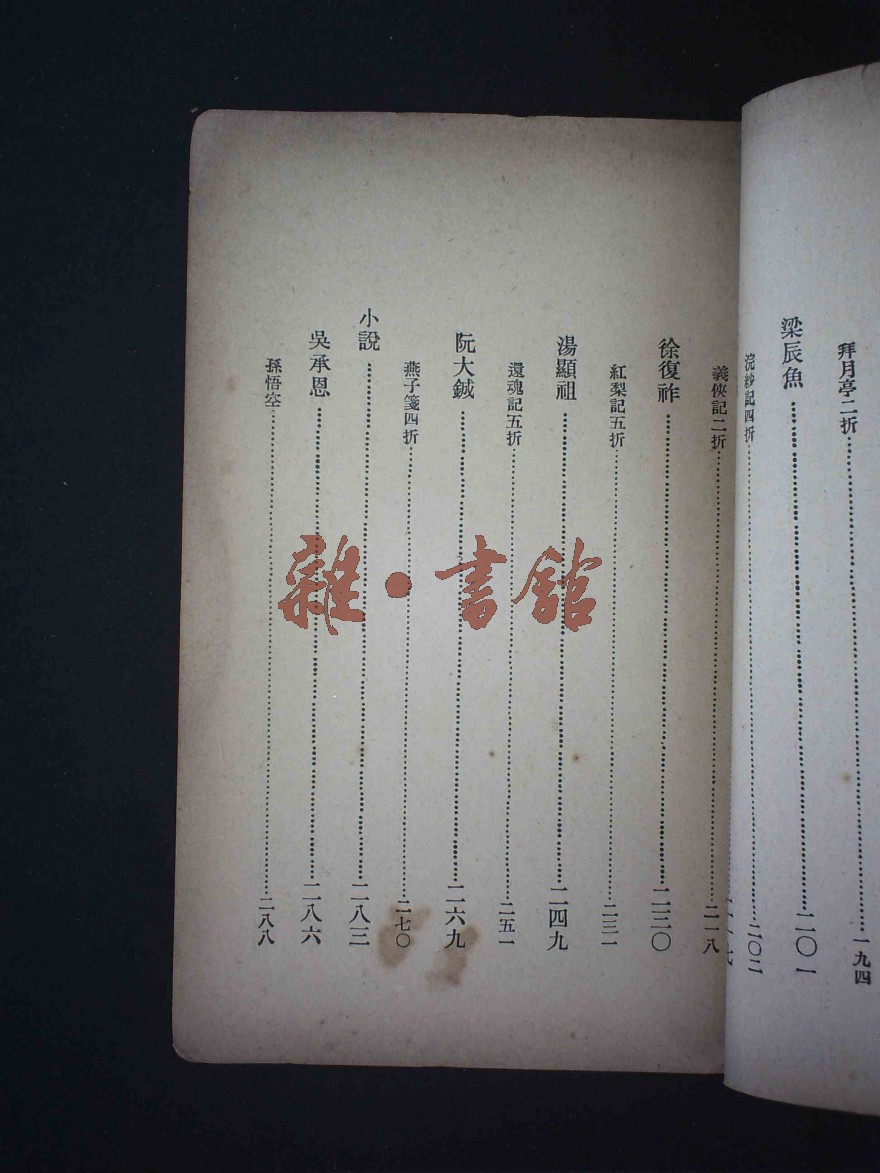 拜月亭二折……一九四
梁辰魚……二〇一
浣紗記四折……二〇二
義俠記二折……二一八
徐復祚……二三〇
紅梨記五折……二三一
湯顯祖……二四九
還魂記五折……二五一
阮大鋮……二六九
燕子箋四折……二七〇
小說……二八三
吳承恩……二八六
孫悟空……二八八
雜·書館